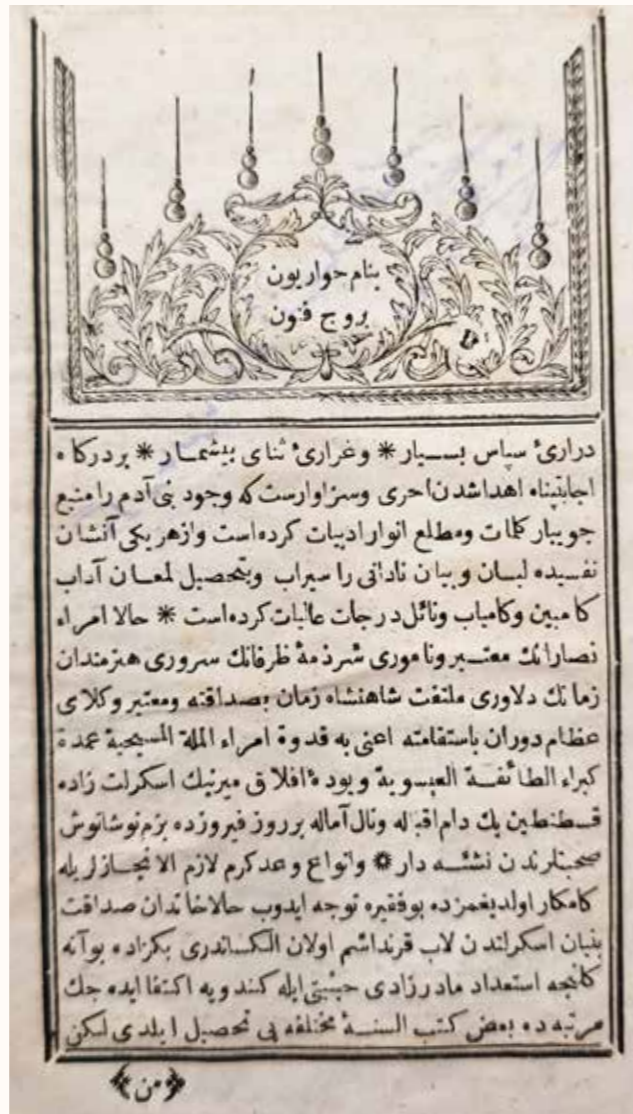 بنام حواریون
بروج فنون
دراریٔ سپاس بسیار * وغراریٔ ثنای بیشمار * بردرکاه
اجابتپناه اهداشدن احری وسزاوارست که وجود بنی آدم رامنبع
جویبار کلمات ومطلع انوار ادبیات کرده است وازهر یکی آنشان
نفسیده لبسان وبیان نادانی را سیراب وبتحصیل لمعان آداب
کامبین وکامیاب ونائل درجات عالیات کرده است * حالا امراء
نصارانك معتبر وناموری شرذمهٔ ظرفانك سروری هنرمندان
زمانك دلاوری ملتفت شاهنشاه زمان بصداقته ومعتبر وکلای
عظام دوران باستقامته اعنی به قدوة امراء الملة المسیحیة عمدة
کبراء الطائفة العیسویة ویودهٔ افلاق میرنیك اسکرلت زاده
قسطنطین بك دام اقباله ونال آماله برروز فیروزده بزم نوشانوش
صحبتلرندن نشئه دار * وانواع وعدکرم لازم الانجازلریله
کامکار اولدیغمزده بوفقیره توجه ایدوب حالاخاندان صداقت
بنیان اسکرلتدن لاب قرنداشم اولان الکساندری بکزاده بوآنه
کلنجه استعداد مادرزادی حیثیتی ایله کندویه اکتفا ایده جك
مرتبه ده بعض کتب السنهٔ مختلفه یی تحصیل ایلدی لکن
من